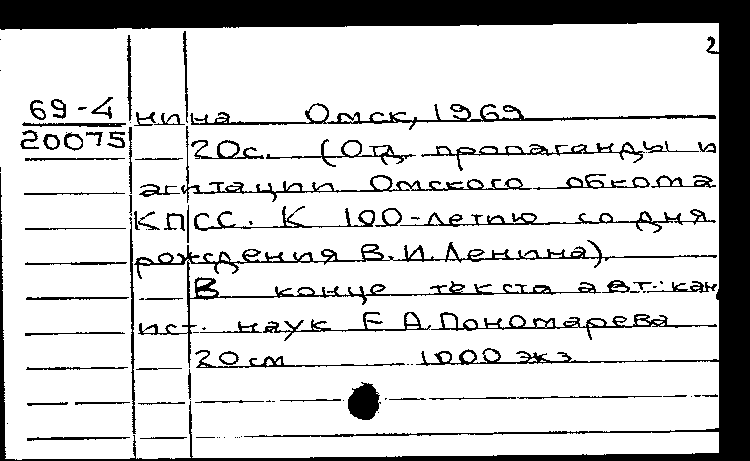 2
69-4 нина Омск, 1969
20075 20с. (Отд. пропаганды и
агитации Омского обкома
КПСС. К 100-летию со дня
рождения В.И.Ленина).
В конце текста авт.: кан
ист. наук Е А.Пономарева
20 см 1000 экз